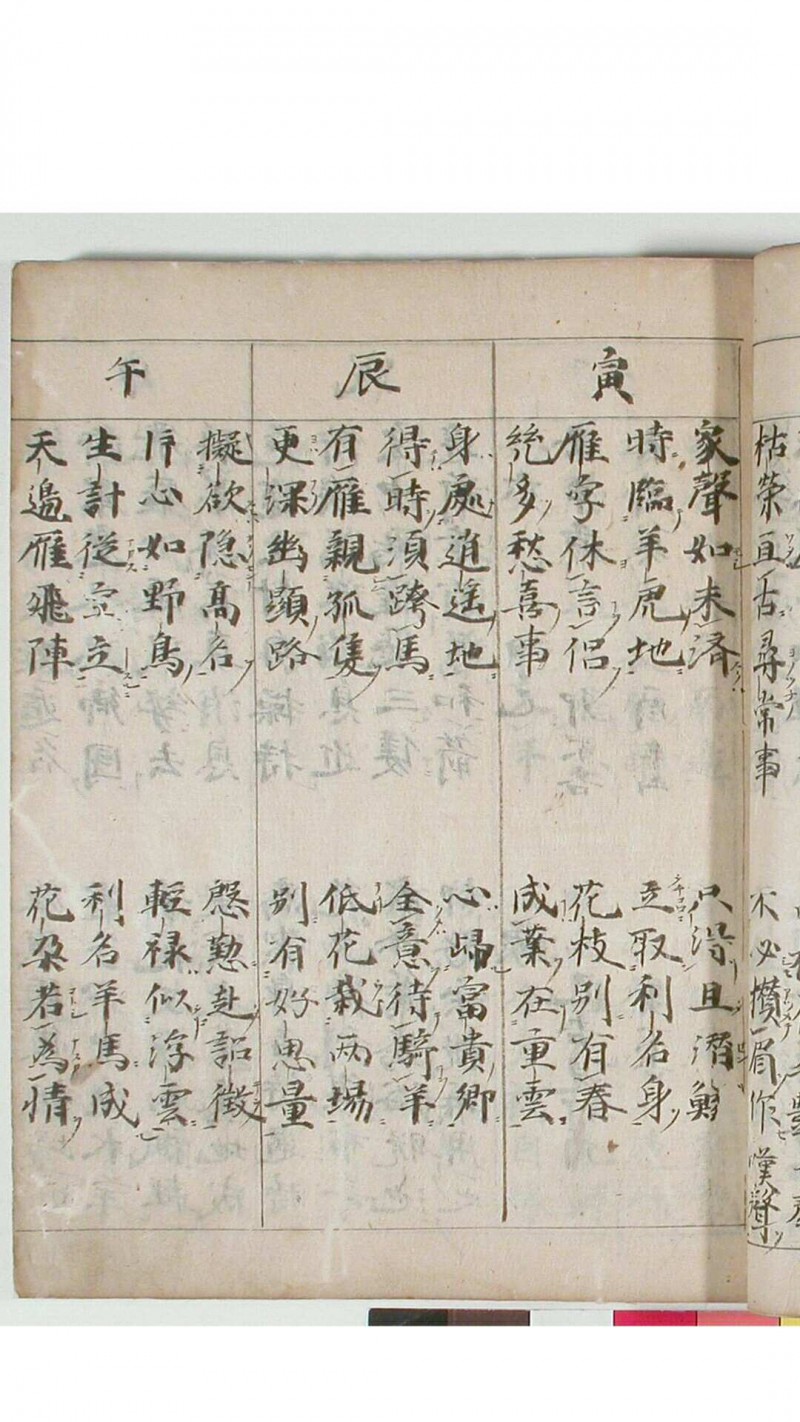 枯榮直舌尋常事
不必攢眉作嘆聲
寅
家聲如未済
只沼且潛
時臨羊虎地
立取利名身
雁字休言侶
花枝別有春
絶多愁喜事
成葉在重雲
辰
身處逍遥地
心歸富貴鄉
得時須跨馬
全意待騎羊
有雁親孤隻
低花栽两場
更深幽顯路
別有好思量
午
擬欲隐高名
慇懃赴詔徴
片心如野鳥
輕禄似浮雲
生計從空立
利名羊馬成
天邉雁飛陣
花朶若為情